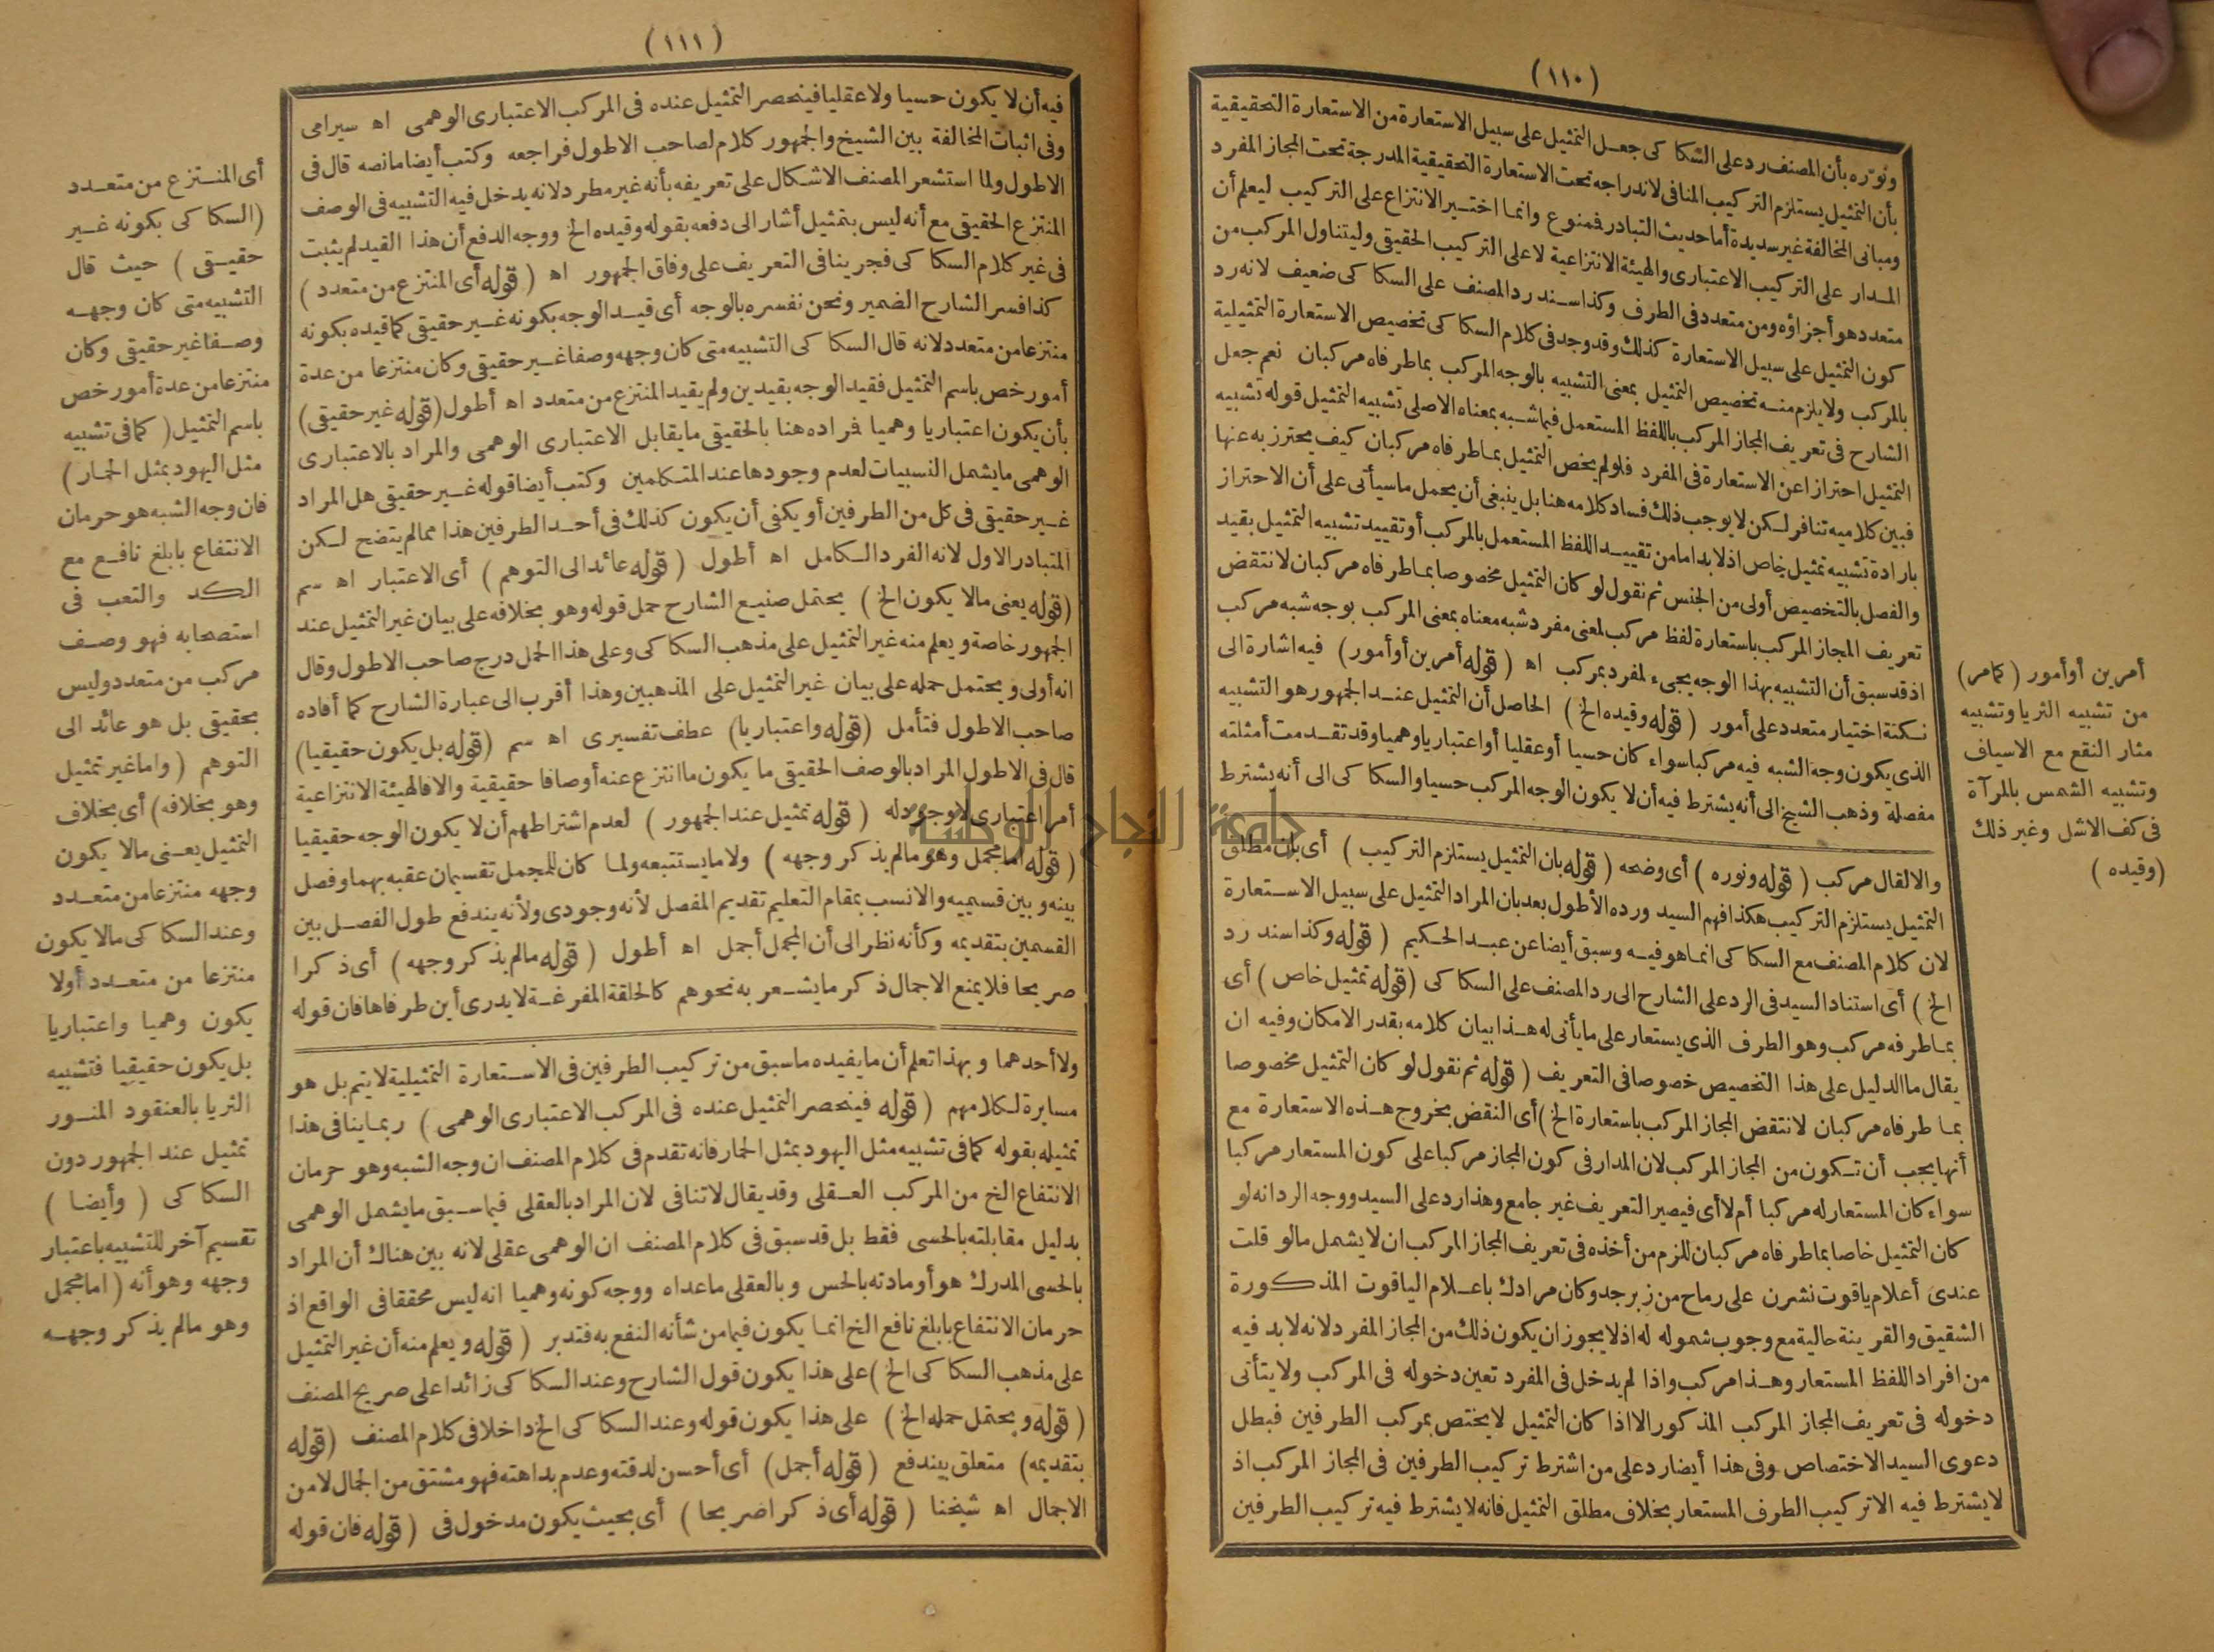 (١١٠)
ونوّره بأن المصنف رد على السكاكى جعل التمثيل على سبيل الاستعارة من الاستعارة التحقيقية
بأن التمثيل يستلزم التركيب المنافى لاندراجه تحت الاستعارة التحقيقية المدرجة تحت المجاز المفرد
ومبانى المخالفة غير سديدة أما حديث التبادر فمنوع وانما اختير الانتزاع على التركيب ليعلم أن
المدار على التركيب الاعتبارى والهيئة الانتزاعية لا على التركيب الحقيقى وليتناول المركب من
متعدد هو أجزاؤه ومن متعدد فى الطرف وكذا سند رد المصنف على السكاكى ضعيف لانه رد
كون التمثيل على سبيل الاستعارة كذلك وقد وجد فى كلام السكاكى تخصيص الاستعارة التمثيلية
بالمركب ولا يلزم منه تخصيص التمثيل بمعنى التشبيه بالوجه المركب بما طرفاه مركبان نعم جعل
الشارح فى تعريف المجاز المركب باللفظ المستعمل فيما شبه بمعناه الاصلى تشبيه التمثيل قوله تشبيه
التمثيل احترازا عن الاستعارة فى المفرد فلو لم يخص التمثيل بما طرفاه مركبان كيف يحترز به عنها
فبين كلاميه تنافر لكن لا يوجب ذلك فساد كلامه هنا بل ينبغى أن يحمل ما سيأتى على أن الاحتراز
بارادة تشبيه تمثيل خاص اذ لا بد اما من تقييد اللفظ المستعمل بالمركب أو تقييد تشبيه التمثيل بقيد
والفصل بالتخصيص أولى من الجنس ثم نقول لو كان التمثيل مخصوصا بما طرفاه مركبان لانتقض
تعريف المجاز المركب باستعارة لفظ مركب لمعنى مفرد شبه معناه بمعنى المركب بوجه شبه مركب
اذ قد سبق أن التشبيه بهذا الوجه يجىء لمفرد بمركب اه (قوله أمرين أو أمور) فيه اشارة الى
نكتة اختيار متعدد على أمور (قوله وقيده الخ) الحاصل أن التمثيل عند الجمهور هو التشبيه
الذى يكون وجه الشبه فيه مركبا سواء كان حسيا أو عقليا أو اعتباريا وهميا وقد تقدمت أمثلته
مفصلة وذهب الشيخ الى أنه يشترط فيه أن لا يكون الوجه المركب حسيا والسكاكى الى أنه يشترط
والا لقال مركب (قوله ونوره) أى وضحه (قوله بان التمثيل يستلزم التركيب) أى بان مطلق
التمثيل يستلزم التركيب هكذا فهم السيد ورده الأطول بعد بان المراد التمثيل على سبيل الاستعارة
لان كلام المصنف مع السكاكى انما هو فيه وسبق أيضا عن عبد الحكيم (قوله وكذا سند رد
الخ) أى استناد السيد فى الرد على الشارح الى رد المصنف على السكاكى (قوله تمثيل خاص) أى
بما طرفه مركب وهو الطرف الذى يستعار على ما يأتى له هذا بيان كلامه بقدر الامكان وفيه ان
يقال ما الدليل على هذا التخصيص خصوصا فى التعريف (قوله ثم نقول لو كان التمثيل مخصوصا
بما طرفاه مركبان لانتقض المجاز المركب باستعارة الخ) أى النقض بخروج هذه الاستعارة مع
أنها يجب أن تكون من المجاز المركب لان المدار فى كون المجاز مركبا على كون المستعار مركبا
سواء كان المستعار له مركبا أم لا أى فيصير التعريف غير جامع وهذا رد على السيد ووجه الرد انه لو
كان التمثيل خاصا بما طرفاه مركبان للزم من أخذه فى تعريف المجاز المركب ان لا يشمل ما لو قلت
عندى أعلام ياقوت نشرن على رماح من زبرجد وكان مرادك باعلام الياقوت المذكورة
الشقيق والقرينة حالية مع وجوب شموله له اذ لا يجوز ان يكون ذلك من المجاز المفرد لانه لا بد فيه
من افراد اللفظ المستعار وهذا مركب واذا لم يدخل فى المفرد تعين دخوله فى المركب ولا يتأتى
دخوله فى تعريف المجاز المركب المذكور الا اذا كان التمثيل لا يختص بمركب الطرفين فبطل
دعوى السيد الاختصاص وفى هذا أيضا رد على من اشترط تركيب الطرفين فى المجاز المركب اذ
لا يشترط فيه الا تركيب الطرف المستعار بخلاف مطلق التمثيل فانه لا يشترط فيه تركيب الطرفين
أمرين أو أمور (كما مر)
من تشبيه الثريا وتشبيه
مثار النقع مع الاسياف
وتشبيه الشمس بالمرآة
فى كف الاشل وغير ذلك
(وقيده)
(١١١)
فيه أن لا يكون حسيا ولا عقليا فينحصر التمثيل عنده فى المركب الاعتبارى الوهمى اه سيرامى
وفى اثبات المخالفة بين الشيخ والجمهور كلام لصاحب الاطول فراجعه وكتب أيضا ما نصه قال فى
الاطول ولما استشعر المصنف الاشكال على تعريفه بأنه غير مطرد لانه يدخل فيه التشبيه فى الوصف
المنتزع الحقيقى مع أنه ليس بتمثيل أشار الى دفعه بقوله وقيده الخ ووجه الدفع أن هذا القيد لم يثبت
فى غير كلام السكاكى فجرينا فى التعريف على وفاق الجمهور اه (قوله أى المنتزع من متعدد)
كذا فسر الشارح الضمير ونحن نفسره بالوجه أى قيد الوجه بكونه غير حقيقى كما قيده بكونه
منتزعا من متعدد لانه قال السكاكى التشبيه متى كان وجهه وصفا غير حقيقى وكان منتزعا من عدة
أمور خص باسم التمثيل فقيد الوجه بقيدين ولم يقيد المنتزع من متعدد اه أطول (قوله غير حقيقى)
بأن يكون اعتباريا وهميا فراده هنا بالحقيقى ما يقابل الاعتبارى الوهمى والمراد بالاعتبارى
الوهمى ما يشمل النسبيات لعدم وجودها عند المتكلمين وكتب أيضا قوله غير حقيقى هل المراد
غير حقيقى فى كل من الطرفين أو يكفى أن يكون كذلك فى أحد الطرفين هذا مما لم يتضح لكن
المتبادر الاول لانه الفرد الكامل اه أطول (قوله عائد الى التوهم) أى الاعتبار اه سم
(قوله يعنى مالا يكون الخ) يحتمل صنيع الشارح حمل قوله وهو بخلافه على بيان غير التمثيل عند
الجمهور خاصة ويعلم منه غير التمثيل على مذهب السكاكى وعلى هذا الحمل درج صاحب الاطول وقال
انه أولى ويحتمل حمله على بيان غير التمثيل على المذهبين وهذا أقرب الى عبارة الشارح كما أفاده
صاحب الاطول فتأمل (قوله واعتباريا) عطف تفسيرى اه سم (قوله بل يكون حقيقيا)
قال فى الاطول المراد بالوصف الحقيقى ما يكون ما انتزع عنه أوصافا حقيقية والا فالهيئة الانتزاعية
أمر اعتبارى لا وجود له (قوله تمثيل عند الجمهور) لعدم اشتراطهم أن لا يكون الوجه حقيقيا
(قوله اما مجمل وهو مالم يذكر وجهه) ولا ما يستتبعه ولما كان للمجمل تقسيمان عقبه بهما وفصل
بينه وبين قسيميه والانسب بمقام التعليم تقديم المفصل لأنه وجودى ولأنه يندفع طول الفصل بين
القسمين بتقديمه وكأنه نظر الى أن المجمل أجمل اه أطول (قوله مالم يذكر وجهه) أى ذكرا
صريحا فلا يمنع الاجمال ذكر ما يشعر به نحو هم كالحلقة المفرغة لا يدرى أين طرفاها فان قوله
ولا أحدهما وبهذا تعلم أن ما يفيده ما سبق من تركيب الطرفين فى الاستعارة التمثيلية لا يتم بل هو
مسايرة لكلامهم (قوله فينحصر التمثيل عنده فى المركب الاعتبارى الوهمى) ربما ينافى هذا
تمثيله بقوله كما فى تشبيه مثل اليهود بمثل الحمار فانه تقدم فى كلام المصنف ان وجه الشبه وهو حرمان
الانتفاع الخ من المركب العقلى وقد يقال لا تنافى لان المراد بالعقلى فيما سبق ما يشمل الوهمى
بدليل مقابلته بالحسى فقط بل قد سبق فى كلام المصنف ان الوهمى عقلى لانه بين هناك أن المراد
بالحسى المدرك هو أو مادته بالحس وبالعقلى ما عداه ووجه كونه وهميا انه ليس محققا فى الواقع اذ
حرمان الانتفاع بابلغ نافع الخ انما يكون فيما من شأنه النفع به فتدبر (قوله ويعلم منه أن غير التمثيل
على مذهب السكاكى الخ) على هذا يكون قول الشارح وعند السكاكى زائدا على صريح المصنف
(قوله ويحتمل حمله الخ) على هذا يكون قوله وعند السكاكى الخ داخلا فى كلام المصنف (قوله
بتقديمه) متعلق بيندفع (قوله أجمل) أى أحسن لدقته وعدم بداهته فهو مشتق من الجمال لا من
الاجمال اه شيخنا (قوله أى ذكرا صريحا) أى بحيث يكون مدخول فى (قوله فان قوله
أى المنتزع من متعدد
(السكاكى بكونه غير
حقيقى) حيث قال
التشبيه متى كان وجهه
وصفا غير حقيقى وكان
منتزعا من عدة أمور خص
باسم التمثيل (كما فى تشبيه
مثل اليهود بمثل الحمار)
فان وجه الشبه هو حرمان
الانتفاع بابلغ نافع مع
الكد والتعب فى
استصحابه فهو وصف
مركب من متعدد وليس
بحقيقى بل هو عائد الى
التوهم (واما غير تمثيل
وهو بخلافه) أى بخلاف
التمثيل يعنى مالا يكون
وجهه منتزعا من متعدد
وعند السكاكى مالا يكون
منتزعا من متعدد أولا
يكون وهميا واعتباريا
بل يكون حقيقيا فتشبيه
الثريا بالعنقود المنور
تمثيل عند الجمهور دون
السكاكى (وأيضا)
تقسيم آخر للتشبيه باعتبار
وجهه وهو أنه (اما مجمل
وهو مالم يذكر وجهه
جامعة النجاح الوطنية